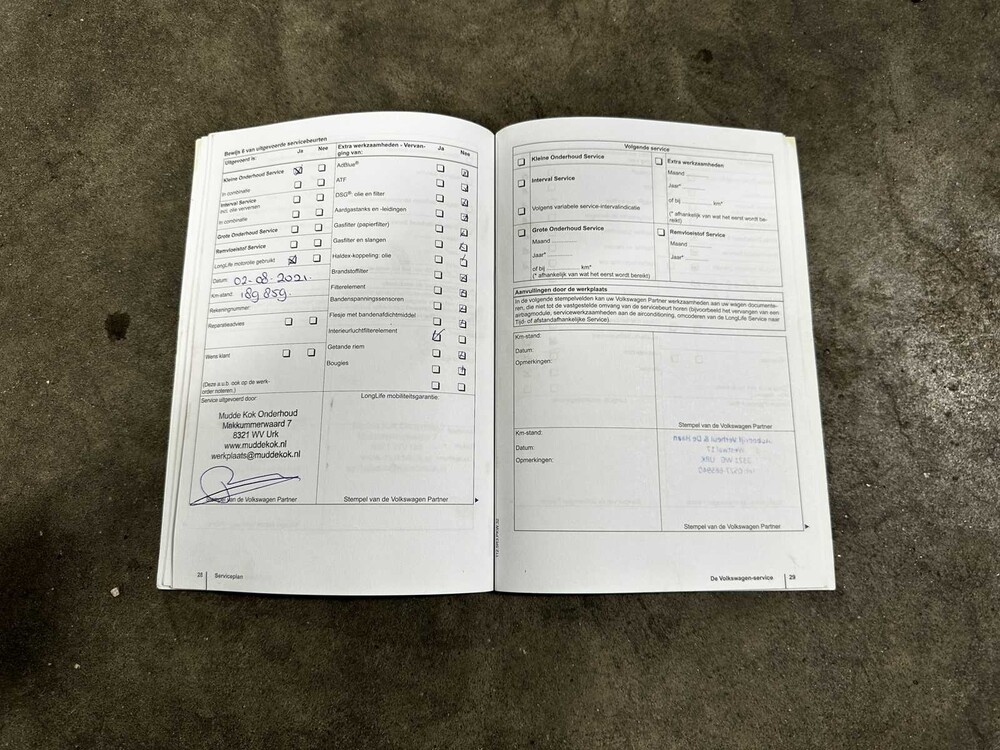 Bewijs 6 van uitgevoerde servicebeurten
Uitgevoerd is: Ja Nee
Kleine Onderhoud Service
In combinatie
Interval Service
incl. olie verversen
In combinatie
Grote Onderhoud Service
Remvloeistof Service
LongLife motorolie gebruikt
Datum: 02-08-2021.
Km-stand: 189.859.
Rekeningnummer:
Reparatieadvies
Wens klant
(Deze a.u.b. ook op de werk-
order noteren.)
Service uitgevoerd door:
Mudde Kok Onderhoud
Makkummerwaard 7
8321 WV Urk
www.muddekok.nl
werkplaats@muddekok.nl
Stempel van de Volkswagen Partner
Extra werkzaamheden - Vervan-
ging van: Ja Nee
AdBlue®
ATF
DSG®: olie en filter
Aardgastanks en -leidingen
Gasfilter (papierfilter)
Gasfilter en slangen
Haldex-koppeling: olie
Brandstoffilter
Filterelement
Bandenspanningssensoren
Flesje met bandenafdichtmiddel
Interieurluchtfilterelement
Getande riem
Bougies
LongLife mobiliteitsgarantie:
Stempel van de Volkswagen Partner
28 Serviceplan
Volgende service
Kleine Onderhoud Service
Interval Service
Volgens variabele service-intervalindicatie
Grote Onderhoud Service
Maand
Jaar*
of bij km*
(* afhankelijk van wat het eerst wordt bereikt)
Extra werkzaamheden
Maand
Jaar*
of bij km*
(* afhankelijk van wat het eerst wordt be-
reikt)
Remvloeistof Service
Maand
Jaar*
Aanvullingen door de werkplaats
In de volgende stempelvelden kan uw Volkswagen Partner werkzaamheden aan uw wagen documente-
ren, die niet tot de vastgestelde omvang van de servicebeurt horen (bijvoorbeeld het vervangen van een
airbagmodule, servicewerkzaamheden aan de airconditioning, omcoderen van de LongLife Service naar
Tijd- of afstandafhankelijke Service).
Km-stand:
Datum:
Opmerkingen:
Stempel van de Volkswagen Partner
Km-stand:
Datum:
Opmerkingen:
Stempel van de Volkswagen Partner
De Volkswagen-service 29